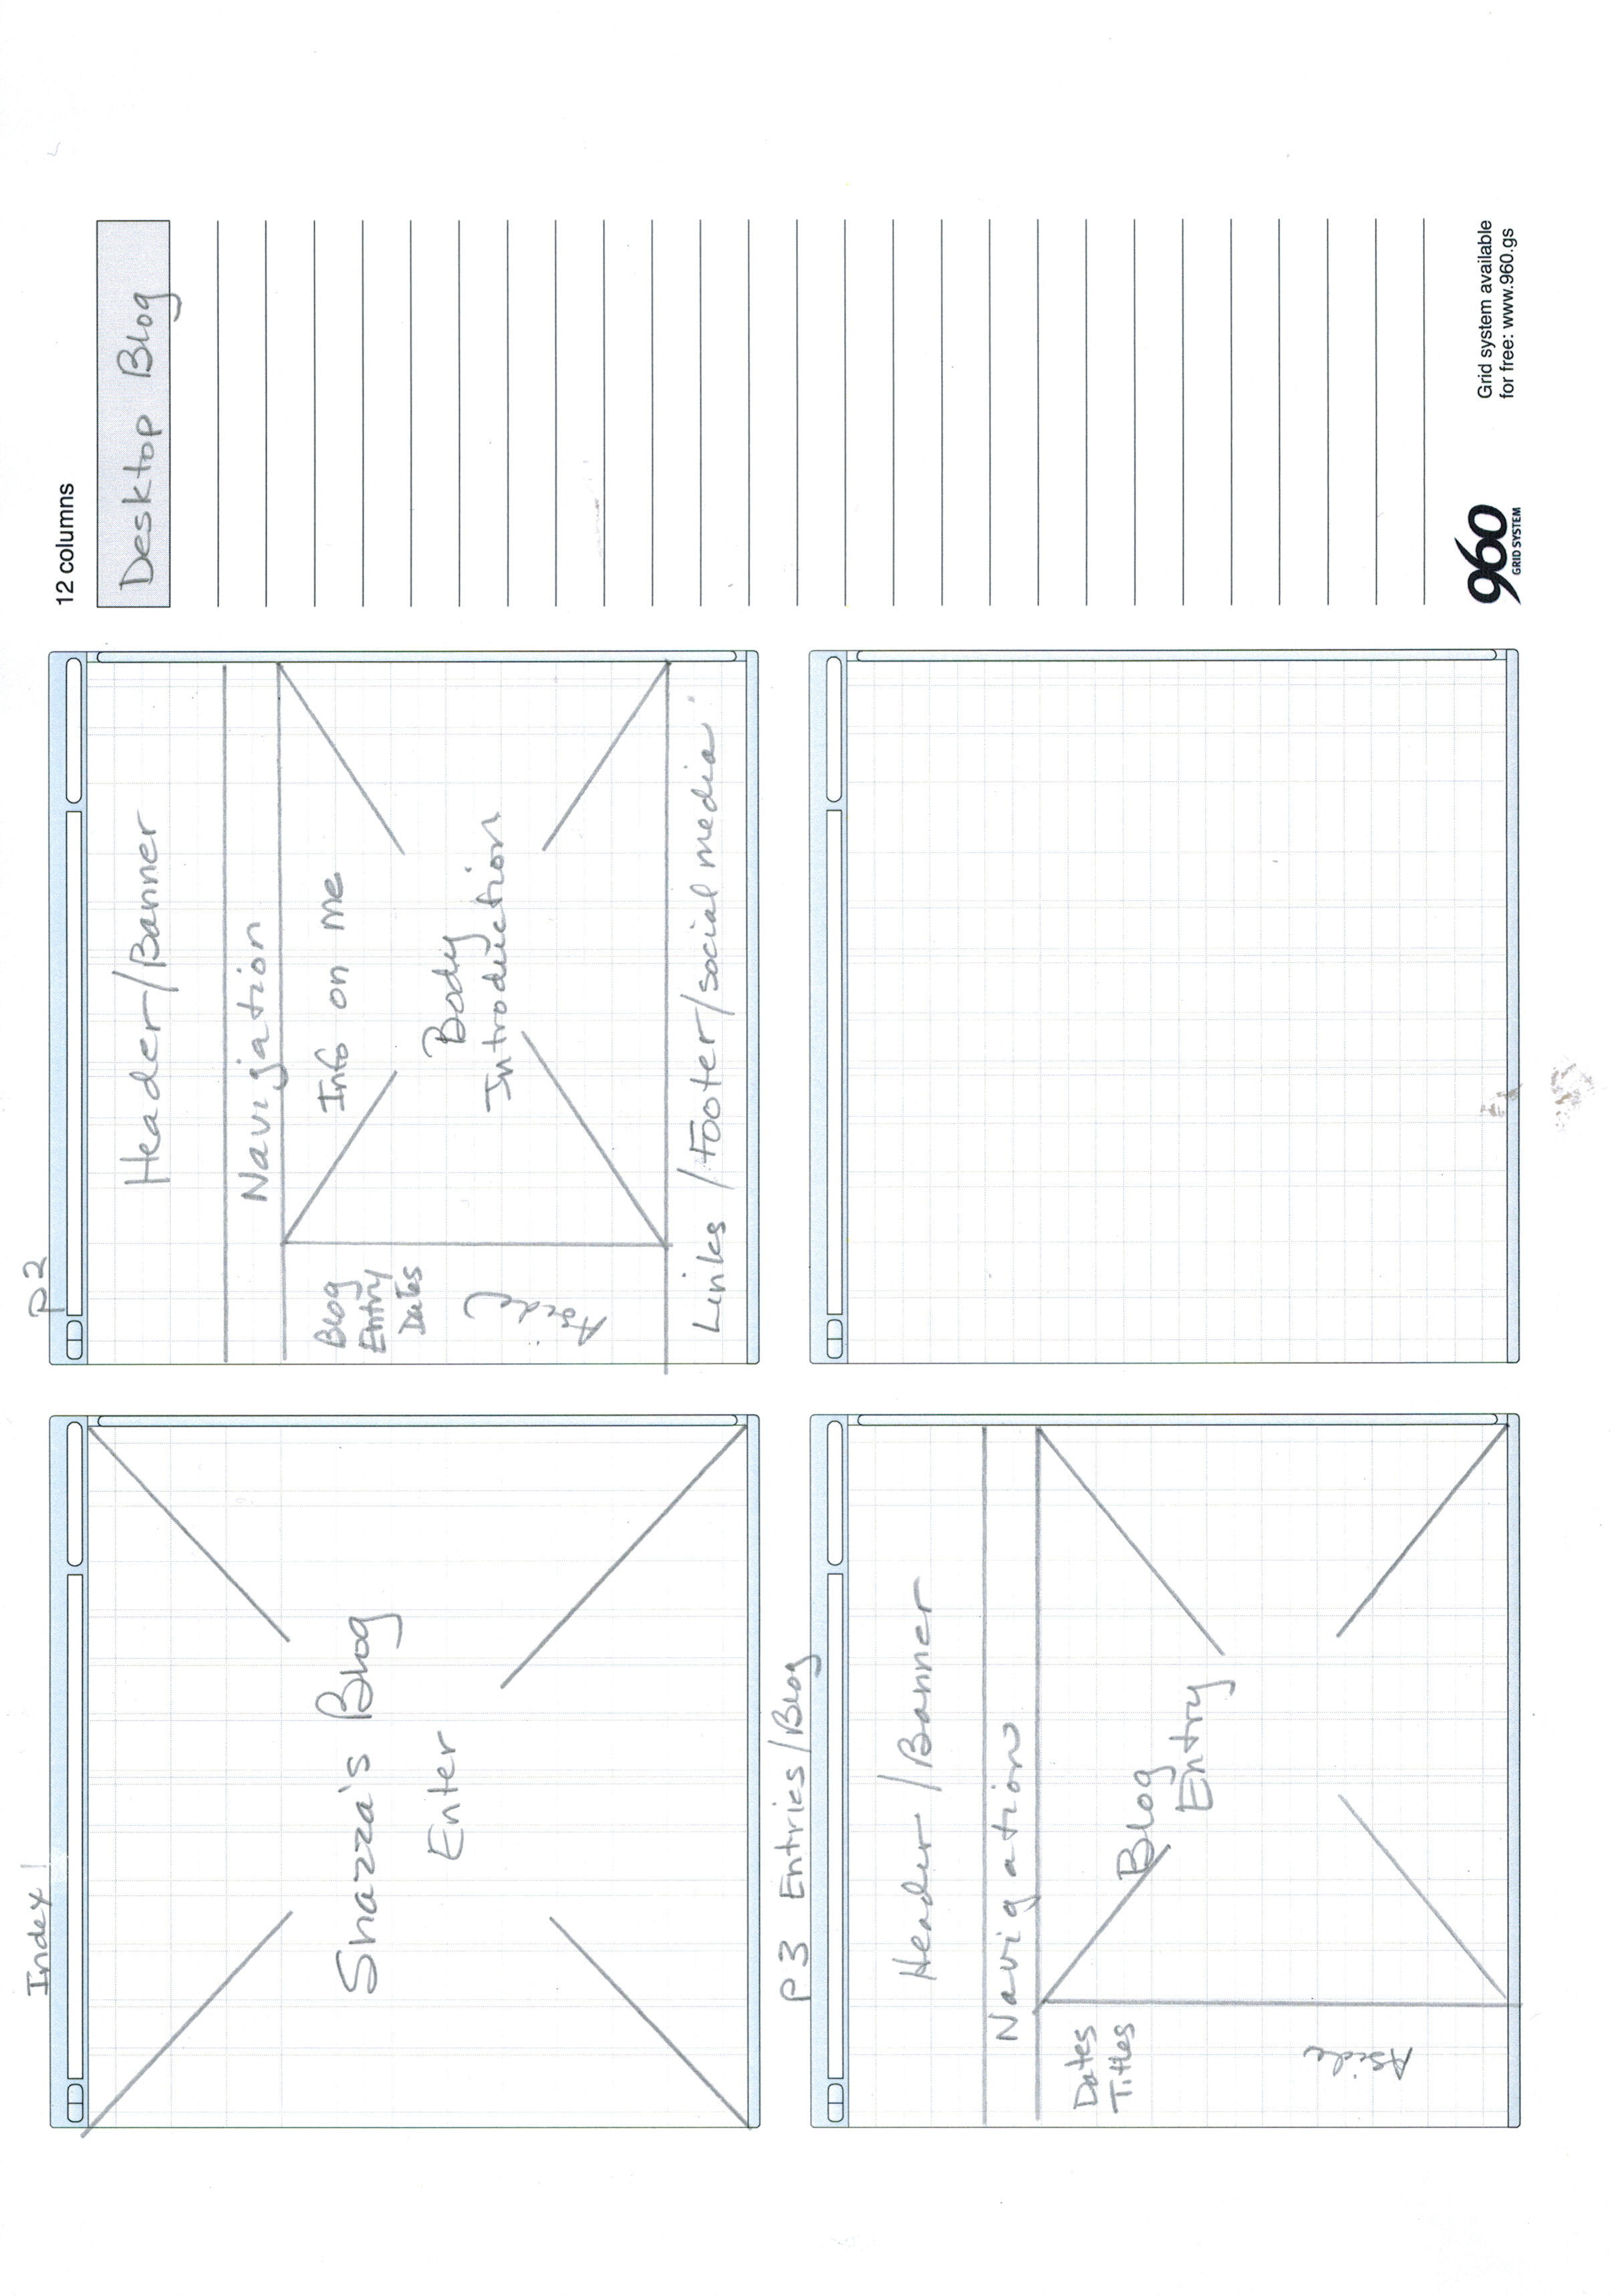 Index
Shazza's Blog
Enter
p2
Header/Banner
Navigation
Blog
Entry
Dates
Aside
Info on me
Body
Introduction
Links / Footer / social media
p3 Entries/Blog
Header / Banner
Navigation
Dates
Titles
Aside
Blog
Entry
12 columns
Desktop Blog
960
GRID SYSTEM
Grid system available
for free: www.960.gs